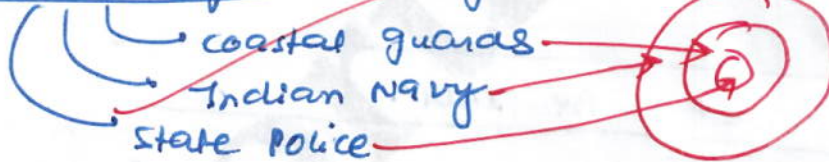 coastal guards
Indian Navy
State Police